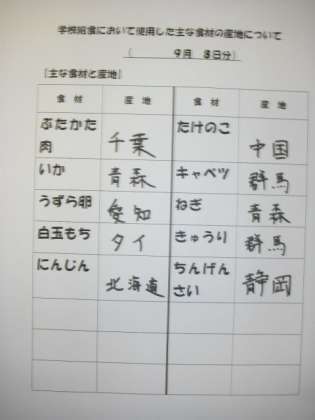 学校給食において使用した主な食材の産地について
（ 9月 8日分）
［主な食材と産地］
食 材 産 地 食 材 産 地
ぶたかた肉 千葉 たけのこ 中国
いか 青森 キャベツ 群馬
うずら卵 愛知 ねぎ 青森
白玉もち タイ きゅうり 群馬
にんじん 北海道 ちんげんさい 静岡